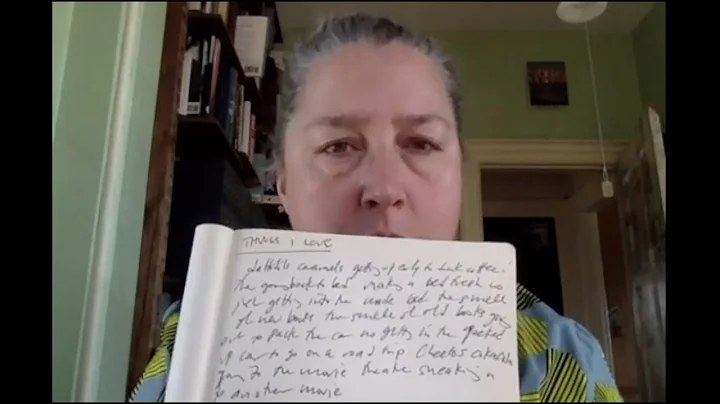 THINGS I LOVE
caramels getting up early to drink coffee
then going back to bed making a bed fresh
getting into the made bed the smell
of new books the smell of old books going
out to pack the car getting in the packed
up car to go on a road trip Cheetos
going to the movie theatre sneaking in
to another movie